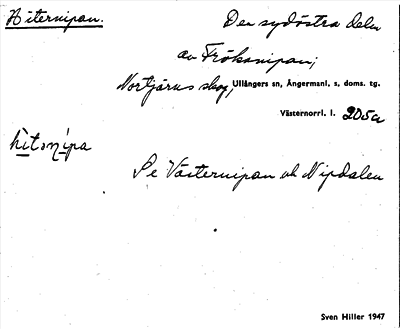 Hiternipan.
Den sydöstra delen
av Frökanipan;
Nortjärns skog, Ullångers sn, Ångermanl. s, doms. tg.
Västernorrl. l. 205a
hìtənìpa
Se Västernipan och Nipdalen
Sven Hiller 1947